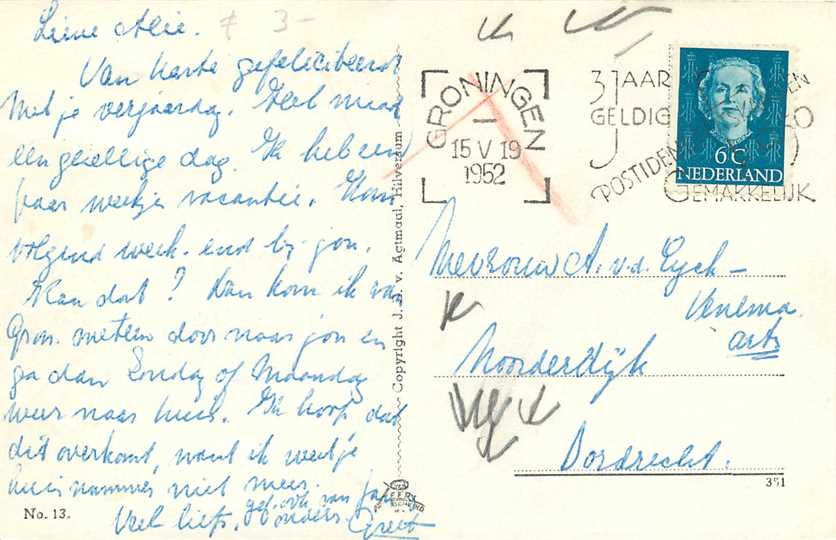 Lieve Alie.
f 3-
Van harte gefeliciteerd
Met je verjaardag. Heel
een gezellige dag. Ik heb een
paar weekjes vacantie. Kom
volgend week-end bij jou.
Kan dat? Dan kom ik van
Gron. meteen door naar jou en
ga dan Zondag of Maandag
weer naar huis. Ik hoop dat
dit overkomt, want ik weet je
huisnummer niet meer.
Veel liefs, gef. ook van
ouders Greet
No. 13.
Copyright J. D. v. Agtmaal, Hilversum
GRONINGEN
15 V 19
1952
3 JAAR
GELDIG
POSTIDEN
GEMAKKELIJK
6 C
NEDERLAND
Mevrouw A. v.d. Eyck-
Venema
arts
Noorderdijk
Dordrecht.
351